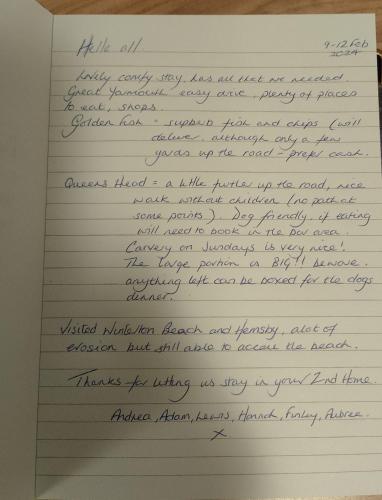 Hello all.
9-12 Feb
2024
Lovely comfy stay, has all that we needed.
Great Yarmouth easy drive, plenty of places
to eat, shops.
Golden Fish = superb fish and chips (will
deliver, although only a few
yards up the road - prefer cash.
Queens Head = a little further up the road, nice
walk without children (no path at
some points). Dog friendly, if eating
will need to book in the bar area.
Carvery on Sundays is very nice!
The large portion is BIG!! beware.
anything left can be boxed for the dogs
dinner.
Visited Winterton Beach and Hemsby, alot of
erosion but still able to access the beach.
Thanks for letting us stay in your 2nd Home.
Andrea, Adam, Lewis, Hannah, Finley, Aubree.
X